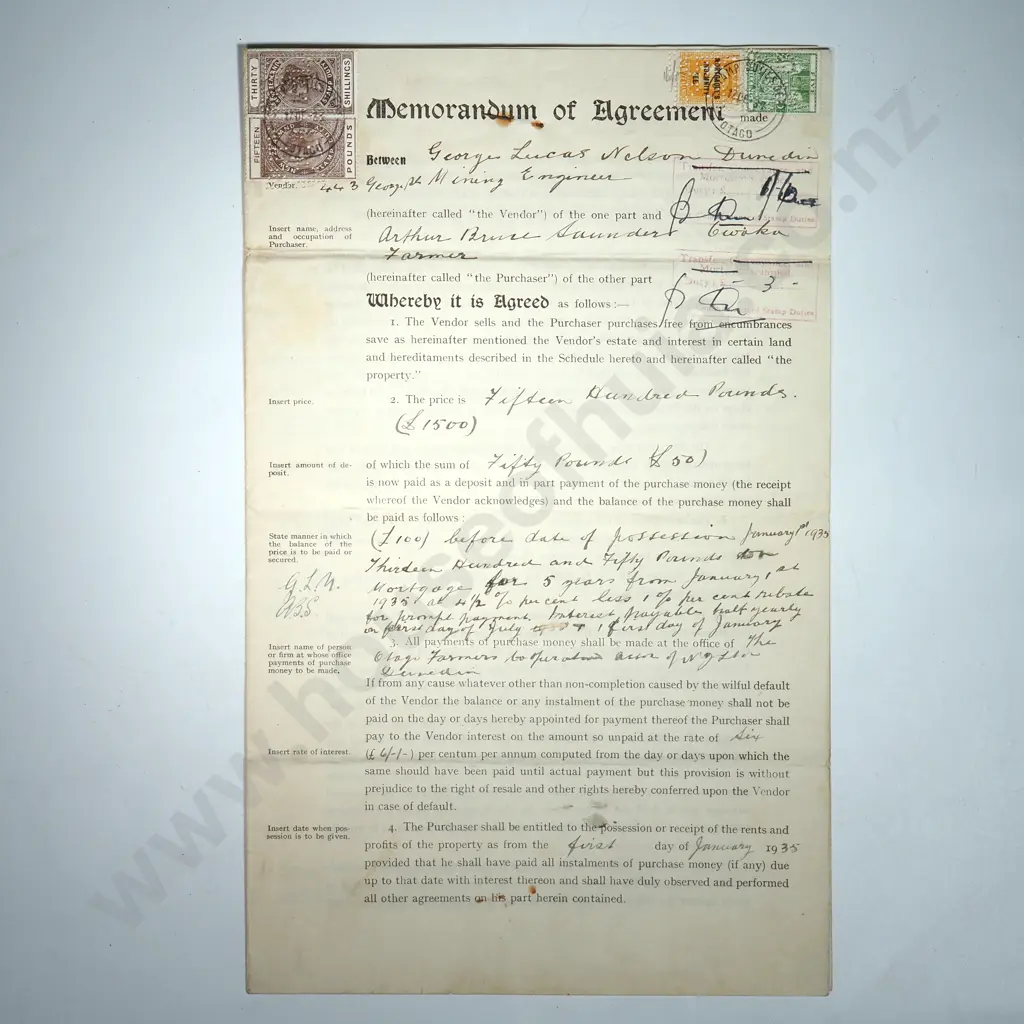 THIRTY SHILLINGS
FIFTEEN POUNDS
Memorandum of Agreement made
Between George Lucas Nelson Dunedin
Vendor. 443 George St Mining Engineer
(hereinafter called "the Vendor") of the one part and
Insert name, address and occupation of Purchaser.
Arthur Bruce Saunders Owaka
Farmer
(hereinafter called "the Purchaser") of the other part
Whereby it is Agreed as follows:—
1. The Vendor sells and the Purchaser purchases free from encumbrances
save as hereinafter mentioned the Vendor's estate and interest in certain land
and hereditaments described in the Schedule hereto and hereinafter called "the
property."
Insert price.
2. The price is Fifteen Hundred Pounds.
(£1500)
Insert amount of deposit.
of which the sum of Fifty Pounds £50)
is now paid as a deposit and in part payment of the purchase money (the receipt
whereof the Vendor acknowledges) and the balance of the purchase money shall
be paid as follows:
State manner in which the balance of the price is to be paid or secured.
(£100) before date of possession January 1st 1935
Thirteen Hundred and Fifty Pounds on
Mortgage for 5 years from January 1st
1935 at 4½ % per cent less 1 % per cent rebate
for prompt payment. Interest payable half yearly
on first day of July 1 first day of January
G.L.N.
ABS
Insert name of person or firm at whose office payments of purchase money to be made.
3. All payments of purchase money shall be made at the office of The
Otago Farmers Cooperative Assn of N Z
Dunedin
If from any cause whatever other than non-completion caused by the wilful default
of the Vendor the balance or any instalment of the purchase money shall not be
paid on the day or days hereby appointed for payment thereof the Purchaser shall
pay to the Vendor interest on the amount so unpaid at the rate of six
Insert rate of interest.
(£ 6/-/-) per centum per annum computed from the day or days upon which the
same should have been paid until actual payment but this provision is without
prejudice to the right of resale and other rights hereby conferred upon the Vendor
in case of default.
Insert date when possession is to be given.
4. The Purchaser shall be entitled to the possession or receipt of the rents and
profits of the property as from the first day of January 1935
provided that he shall have paid all instalments of purchase money (if any) due
up to that date with interest thereon and shall have duly observed and performed
all other agreements on his part herein contained.
www.houseofhuia.co.nz